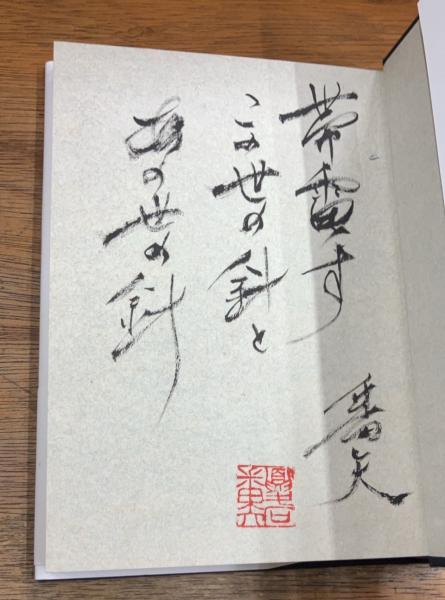 帯電す
この世の針と
あの世の針
番矢